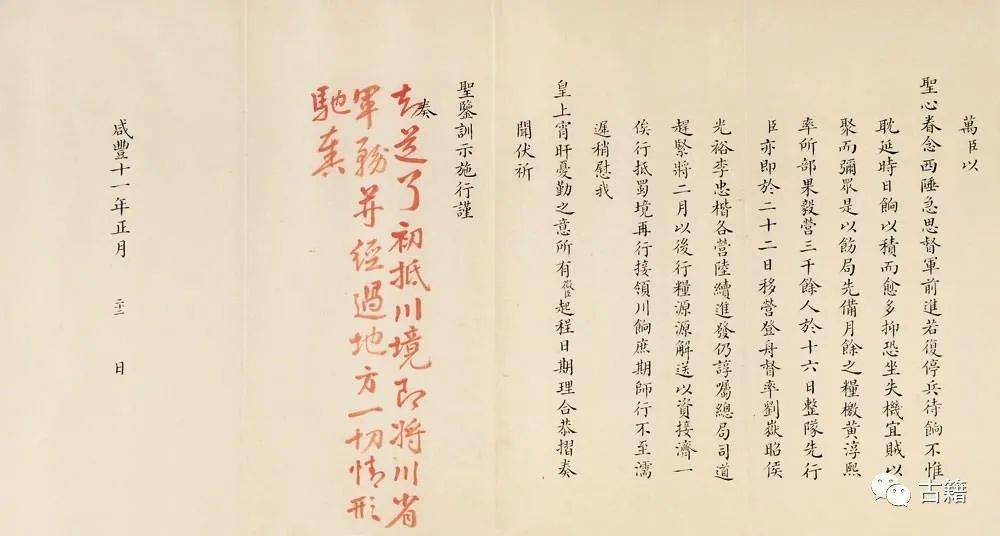 萬臣以
聖心眷念西陲急思督軍前進若復停兵待餉不惟
耽延時日餉以積而愈多抑恐坐失機宜賊以
聚而彌眾是以飭局先備月餘之糧檄黃淳熙
率所部果毅營三千餘人於十六日整隊先行
臣亦即於二十二日移營登舟督率劉嶽昭侯
光裕李忠楷各營陸續進發仍諄囑總局司道
趕緊將二月以後行糧源源解送以資接濟一
俟行抵蜀境再行接領川餉庶期師行不至濡
遲稍慰我
皇上宵旰憂勤之意所有微臣起程日期理合恭摺奏
聞伏祈
聖鑒訓示施行謹
奏
知道了初抵川境即將川省
軍務并經過地方一切情形
馳奏
咸豐十一年正月 二十二 日
古籍